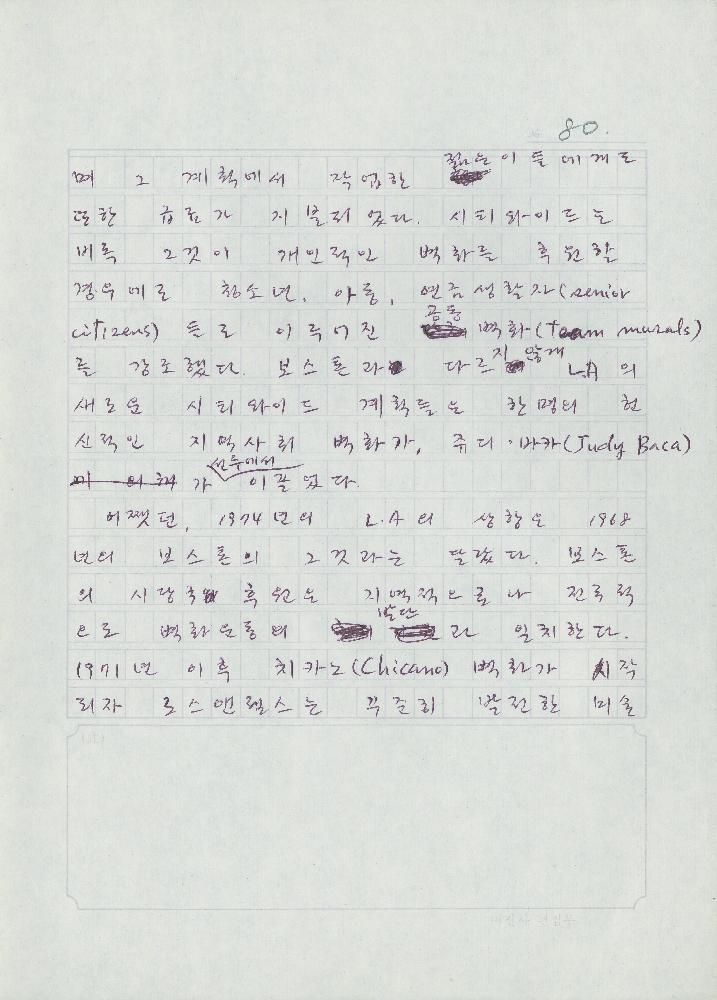 80.
며 그 계획에서 작업한 젊은이들에게도
또한 급료가 지불되었다. 시티와이드는
비록 그것이 개인적인 벽화를 후원할
경우에도 청소년, 아동, 연금생활자(senior
citizens) 들로 이루어진 공동 벽화(team murals)
를 강조했다. 보스톤과 다르지 않게 L.A 의
새로운 시티와이드 계획들은 한명의 헌
신적인 지역사회 벽화가, 쥬디·바카(Judy Baca)
가 선두에서 이끌었다.
어쨋던, 1974년의 L.A의 상황은 1968
년의 보스톤의 그것과는 달랐다. 보스톤
의 시당국 후원은 지역적으로나 전국적
으로 벽화운동의 발단과 일치한다.
1971년 이후 치카노(Chicano) 벽화가 시작
되자 로스앤젤스는 꾸준히 발전한 미술